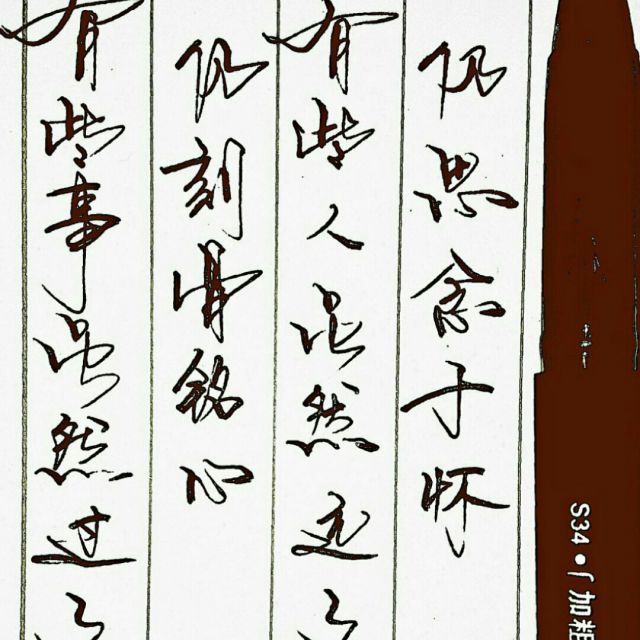 有些事虽然过了
仍刻骨铭心
有些人虽然远了
仍思念于怀
S34•「加粗